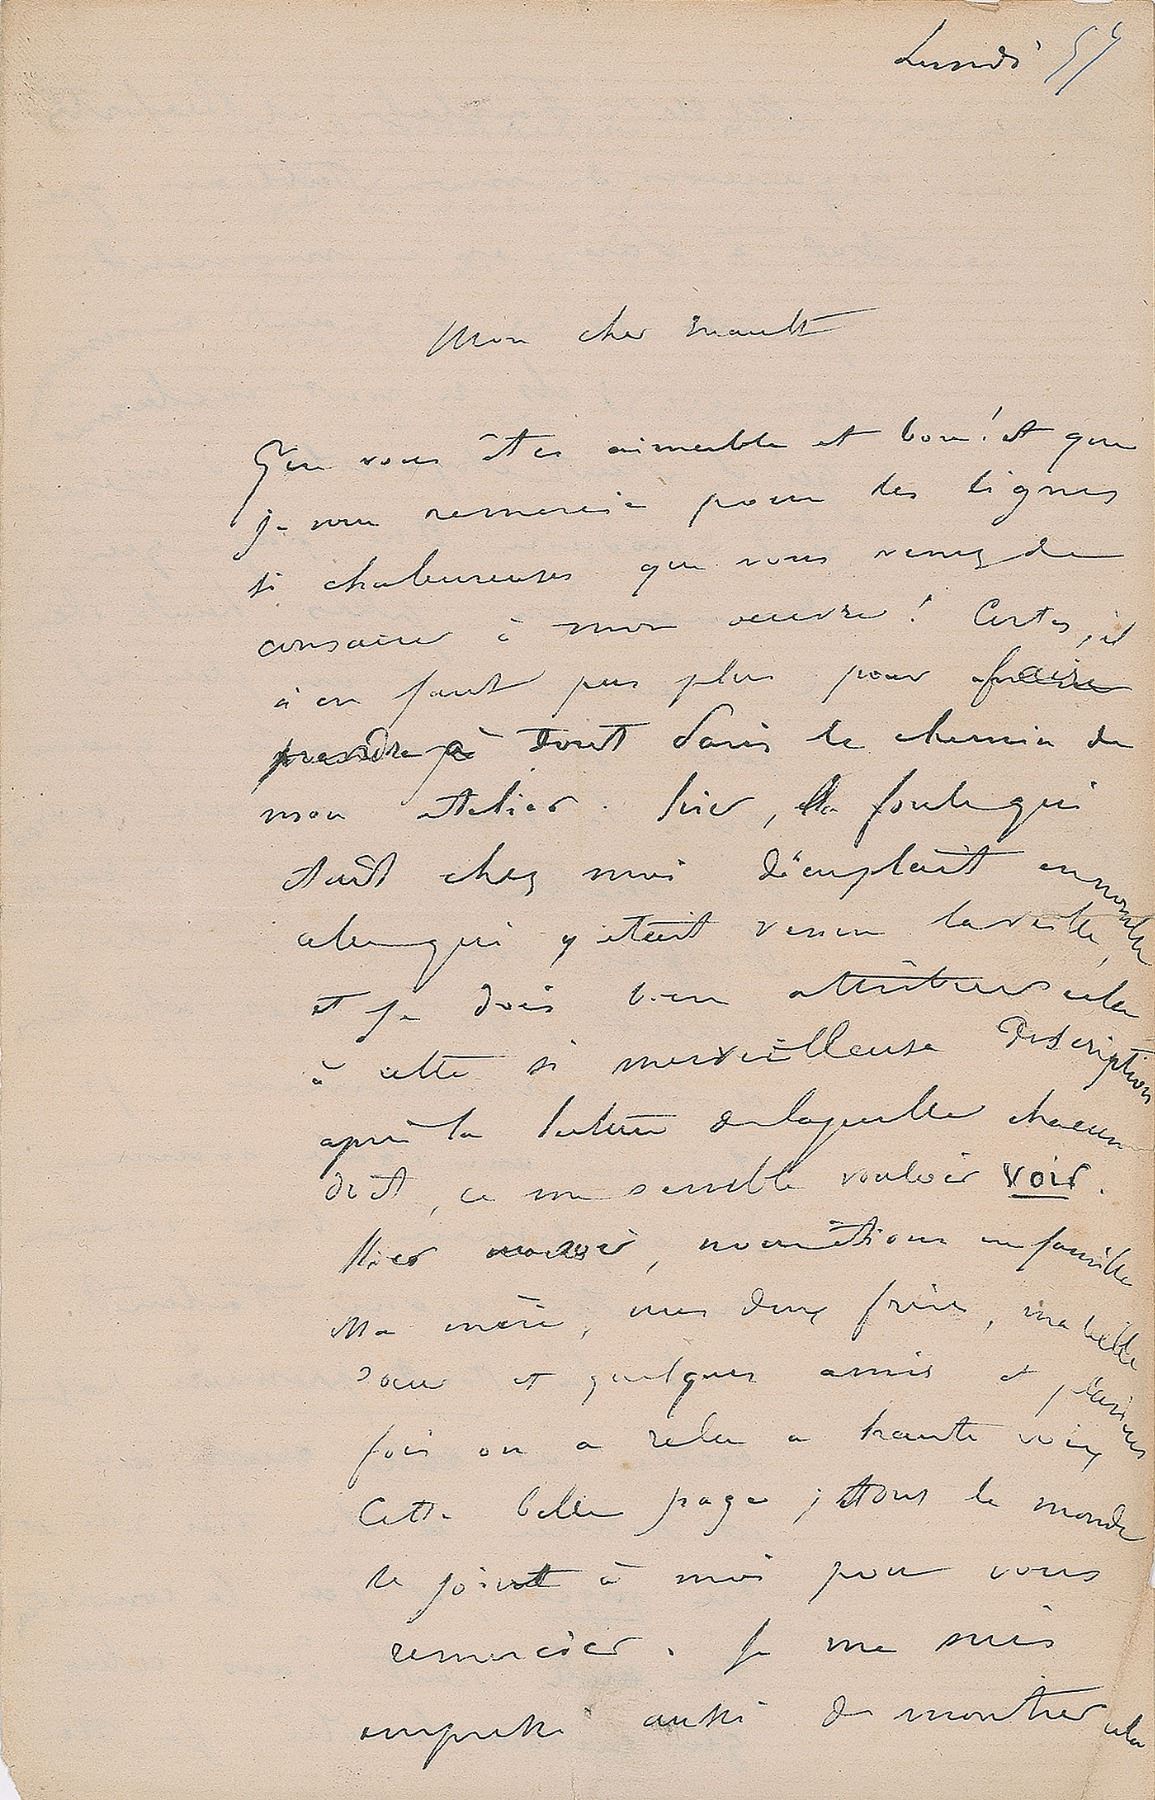 Lundi 54
Mon cher Enault
Que vous êtes aimable et bon! et que
je vous remercie pour les lignes
si chaleureuses que vous venez de
consacrer à mon oeuvre! Certes, il
n'en faut pas plus pour faire
prendre à tout Paris le chemin de
mon atelier. hier, la foule qui
était chez moi décuplait en nombre
celle qui y était venue la veille,
et je dois bien attribuer cela
à cette si merveilleuse description
après la lecture de laquelle chacun
doit, ce me semble vouloir voir.
Hier soir, nous étions en famille
Ma mère, mes deux frères, ma belle
soeur et quelques amis et plusieurs
fois on a relu a haute voix
Cette belle page; tout le monde
se joint à moi pour vous
remercier. Je me suis
empressé aussi de montrer cela